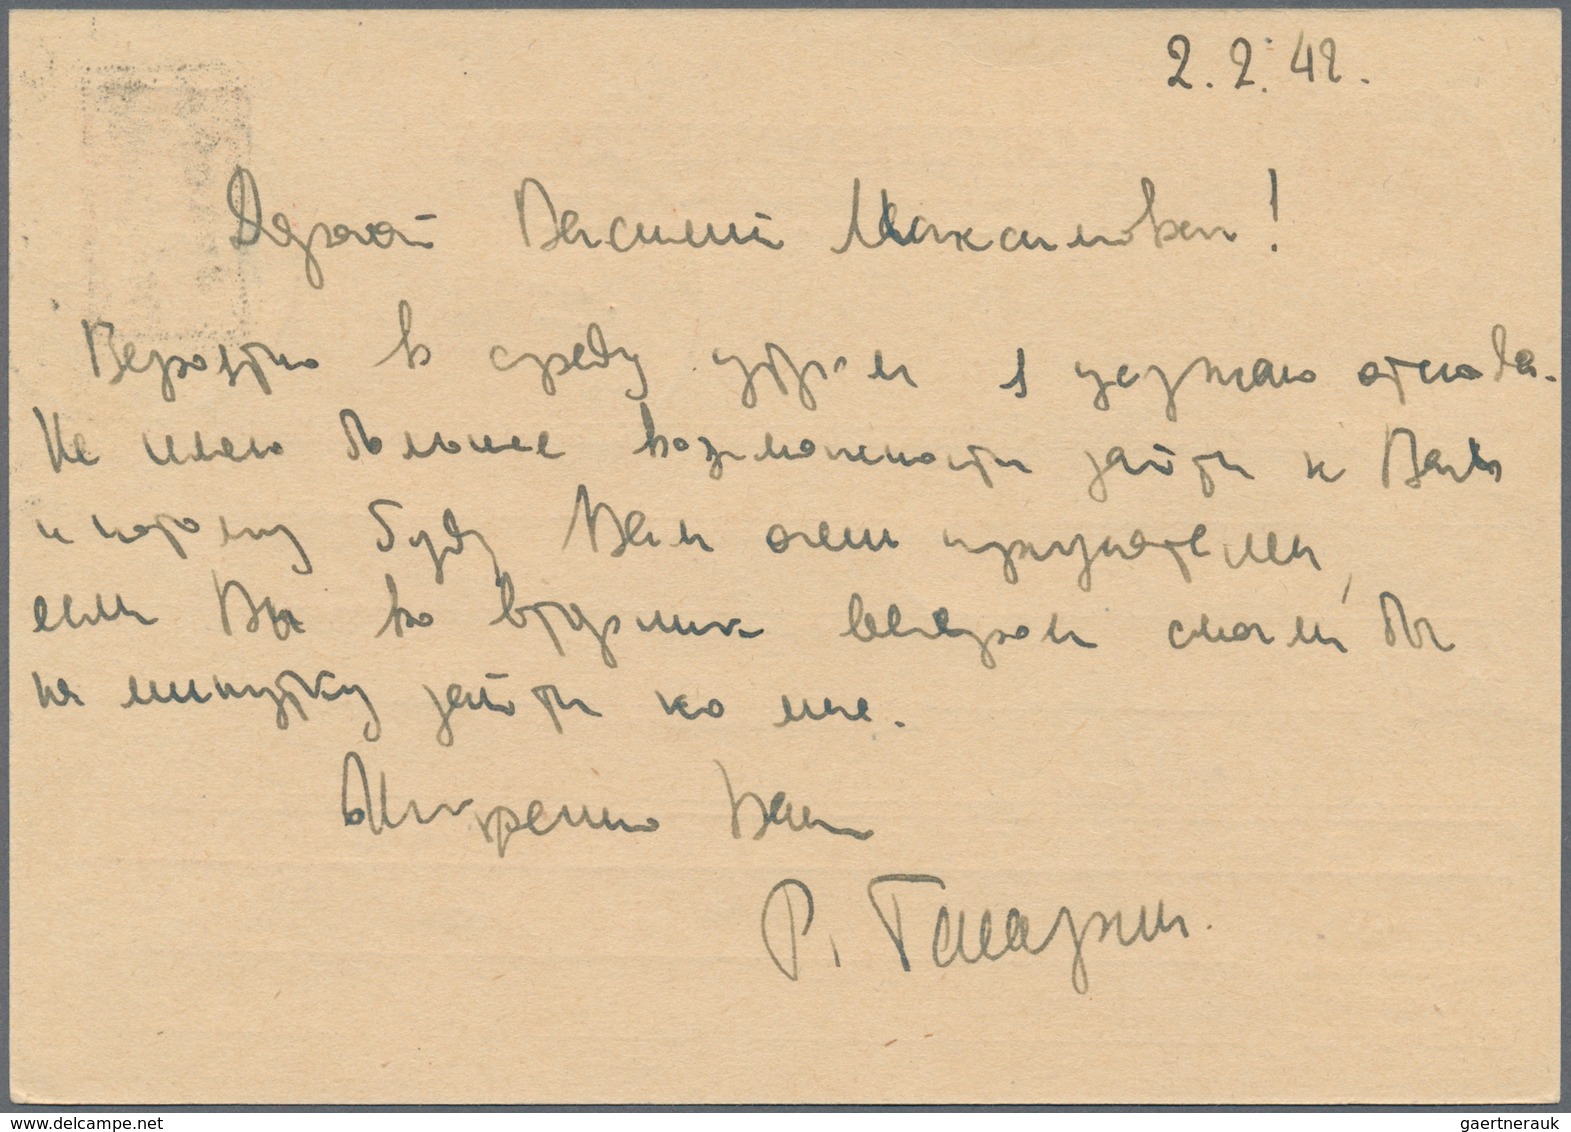 2.2.42.
Дорогой Василий Максимович!
Вероятно в среду утром я уезжаю отсюда.
Не имею больше возможности зайти к Вам
и потому буду Вам очень признателен,
если Вы во вторник вечером смогли бы
на минутку зайти ко мне.
Искренно Ваш
Р.
www.delcampe.net
gaertnerauk